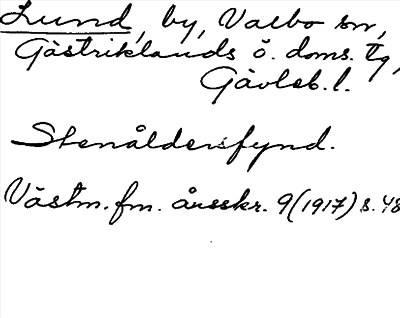 Lund, by, Valbo sn,
Gästriklands ö. doms. tg,
Gävleb. l.
Stenåldersfynd.
Västm. fm. årsskr. 9 (1917) s. 48